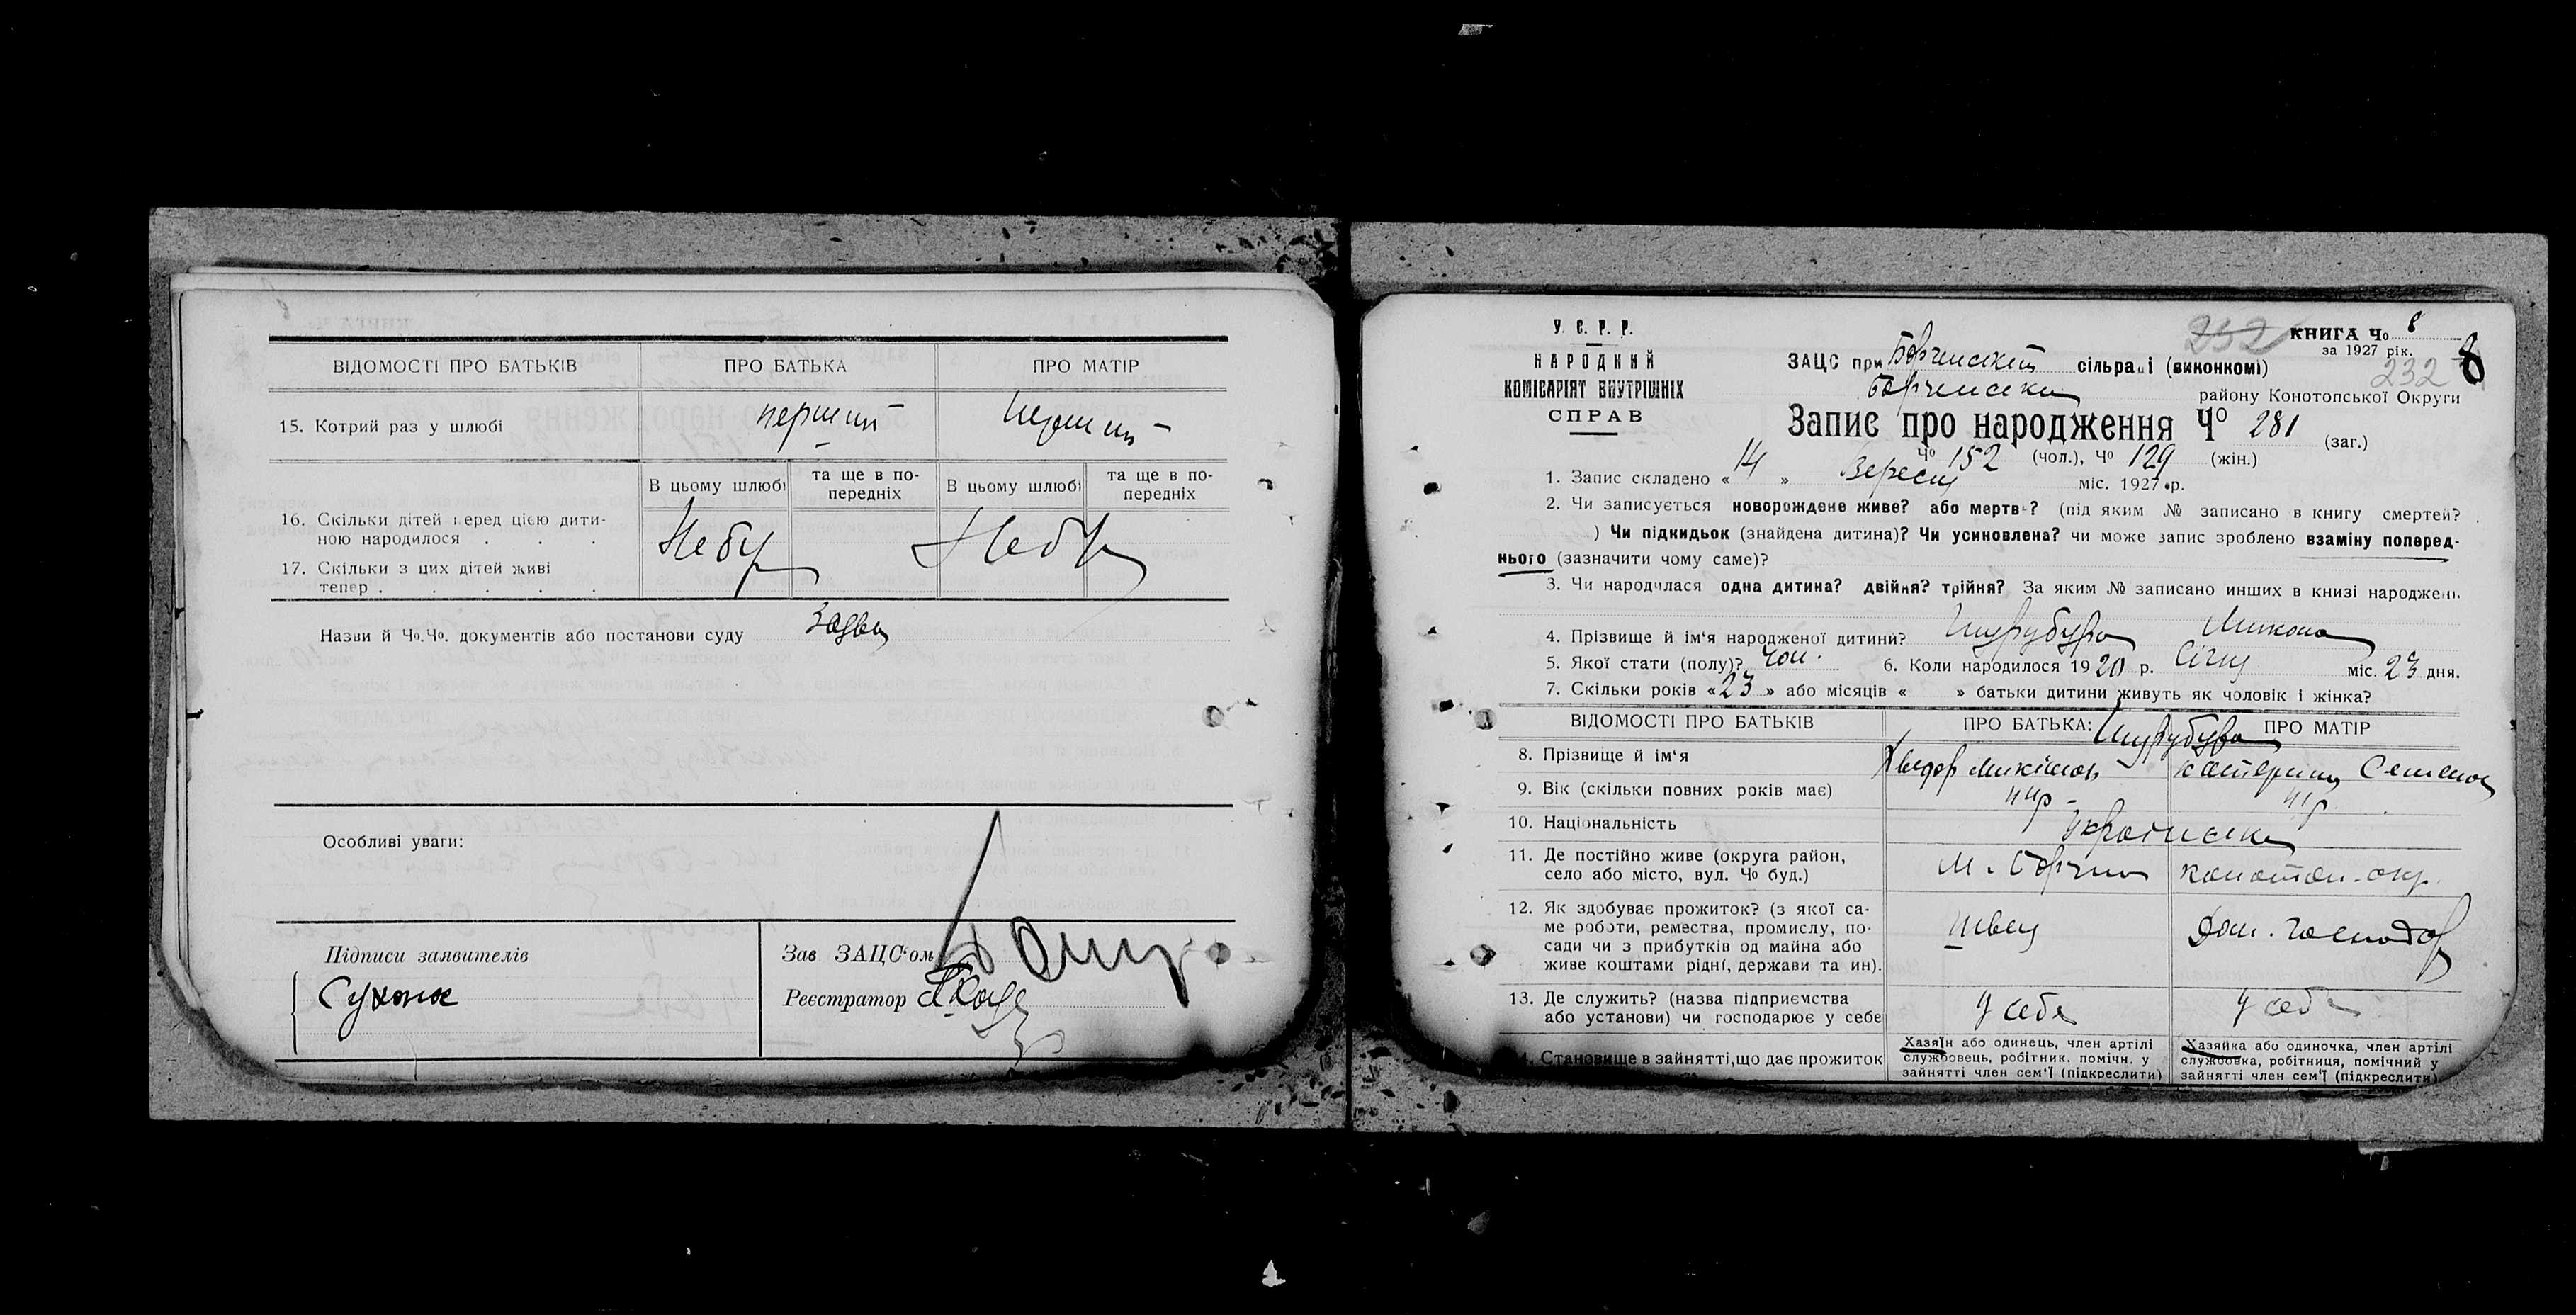 ВІДОМОСТІ ПРО БАТЬКІВ ПРО БАТЬКА ПРО МАТІР
15. Котрий раз у шлюбі перший перший
В цьому шлюбі та ще в по-передніх В цьому шлюбі та ще в по-передніх
16. Скільки дітей перед цією дити-
ною народилося . . .
17. Скільки з цих дітей живі
тепер . . . . .
Назви й Чо.Чо. документів або постанови суду
Особливі уваги:
Підписи заявителів Зав ЗАЦС'ом
Реєстратор
У. С. Р. Р.
НАРОДНИЙ
КОМІСАРІЯТ ВНУТРІШНІХ
СПРАВ
232 КНИГА Чо 8
за 1927 рік.
232 8
ЗАЦС при Борченській сільраді (виконкомі)
району Конотопської Округи
Запис про народження Чо 281 (заг.)
Чо 152 (чол.), Чо 129 (жін.)
1. Запис складено « 14 » Вересня міс. 1927 р.
2. Чи записується новорождене живе? або мертве? (під яким № записано в книгу смертей?
) Чи підкидьок (знайдена дитина)? Чи усиновлена? чи може запис зроблено взаміну поперед-
нього (зазначити чому саме)?
3. Чи народилася одна дитина? двійня? трійня? За яким № записано инших в книзі народжень
4. Прізвище й ім'я народженої дитини? Шурубура Микола
5. Якої стати (полу)? чол. 6. Коли народилося 1920 р. Січня міс. 23 дня.
7. Скільки років « 23 » або місяців « » батьки дитини живуть як чоловік і жінка?
ВІДОМОСТІ ПРО БАТЬКІВ ПРО БАТЬКА: ПРО МАТІР
Шурубура
8. Прізвище й ім'я Хведор Катерина
9. Вік (скільки повних років має) 44р 41р.
10. Національність
11. Де постійно живе (округа район,
село або місто, вул. Чо буд.) М. Борзна Конотоп. окр.
12. Як здобуває прожиток? (з якої са-
ме роботи, ремества, промислу, по-
сади чи з прибутків од майна або
живе коштами рідні, держави та ин).
швець Дом. господар
13. Де служить? (назва підприємства
або установи) чи господарює у себе
у себе у себе
14. Становище в зайнятті, що дає прожиток
Хазяїн або одинець, член артілі
службовець, робітник. помічн. у
зайнятті член сем'ї (підкреслити)
Хазяйка або одиночка, член артілі
службовка, робітниця, помічний у
зайнятті член сем'ї (підкреслити)